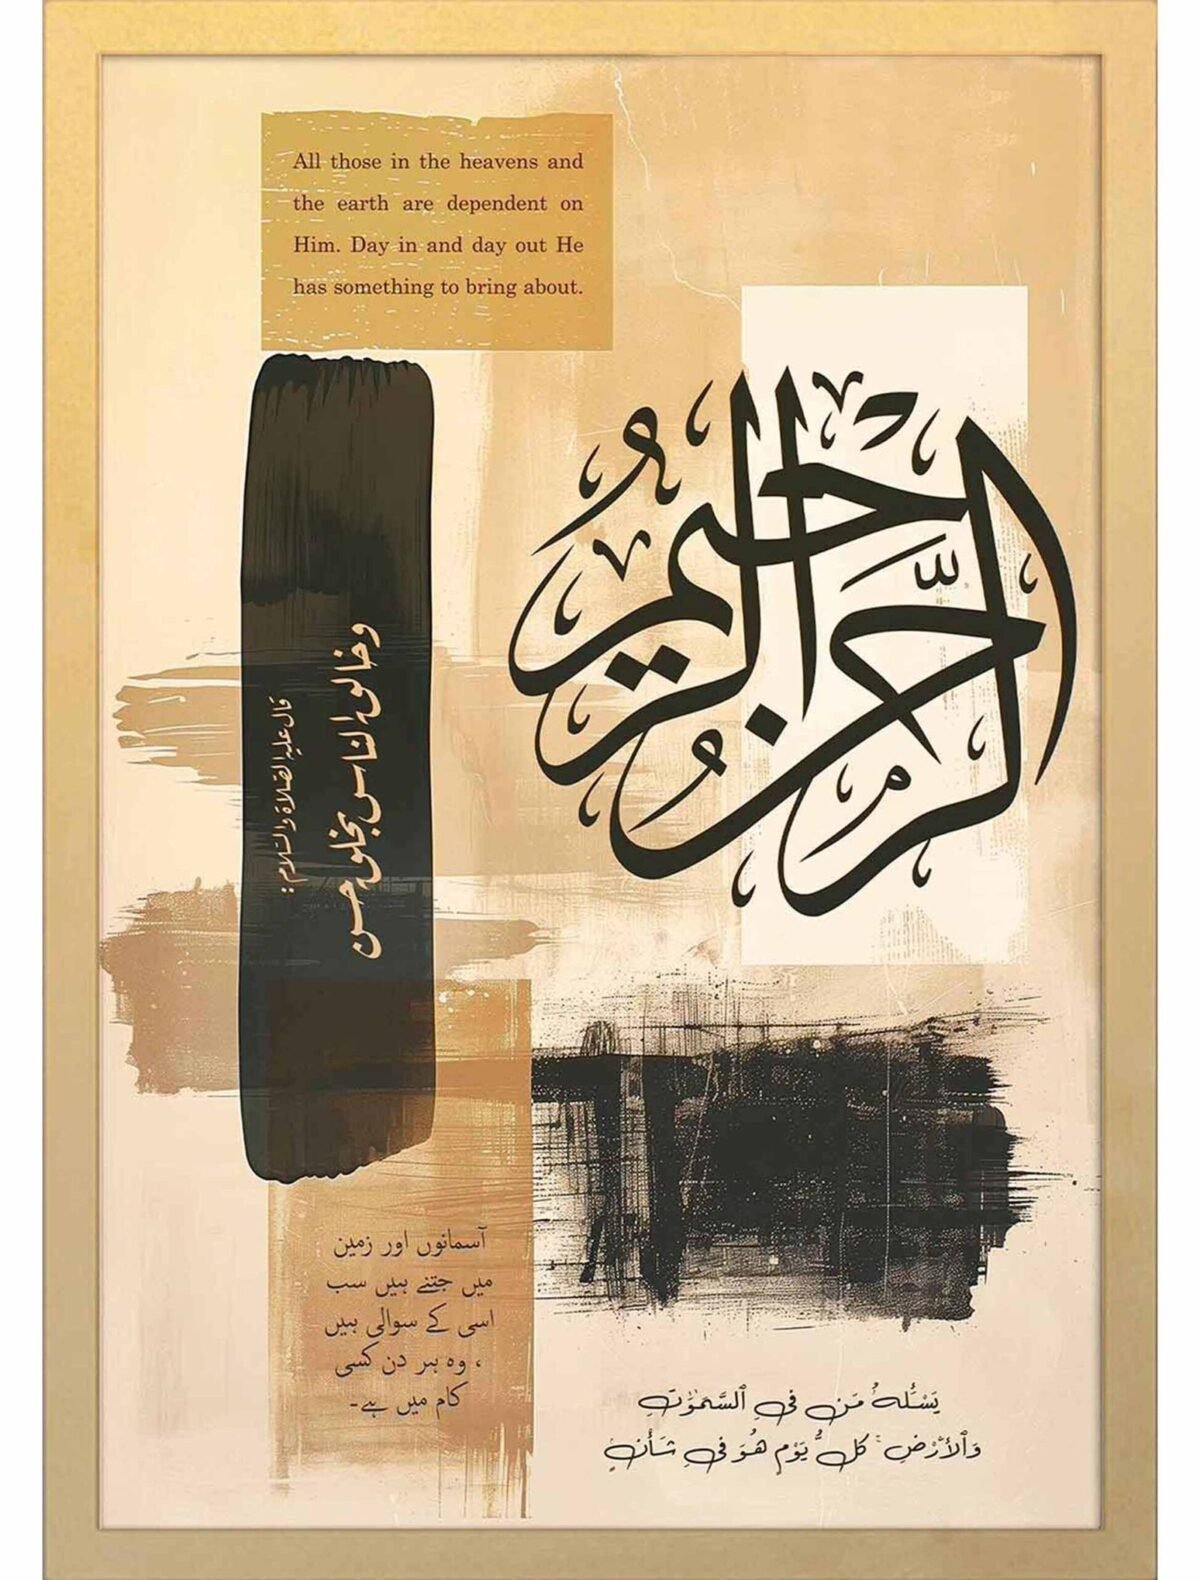 All those in the heavens and
the earth are dependent on
Him. Day in and day out He
has something to bring about.
الرَّحمن الرحيم
قال عليه الصلاة والسلام:
وخالق الناس بخلق حسن
آسمانوں اور زمین
میں جتنے ہیں سب
اسی کے سوالی ہیں
، وہ ہر دن کسی
کام میں ہے۔
يَسْـَٔلُهُۥ مَن فِى ٱلسَّمَـٰوَٰتِ
وَٱلْأَرْضِ ۚ كُلَّ يَوْمٍ هُوَ فِى شَأْنٍ